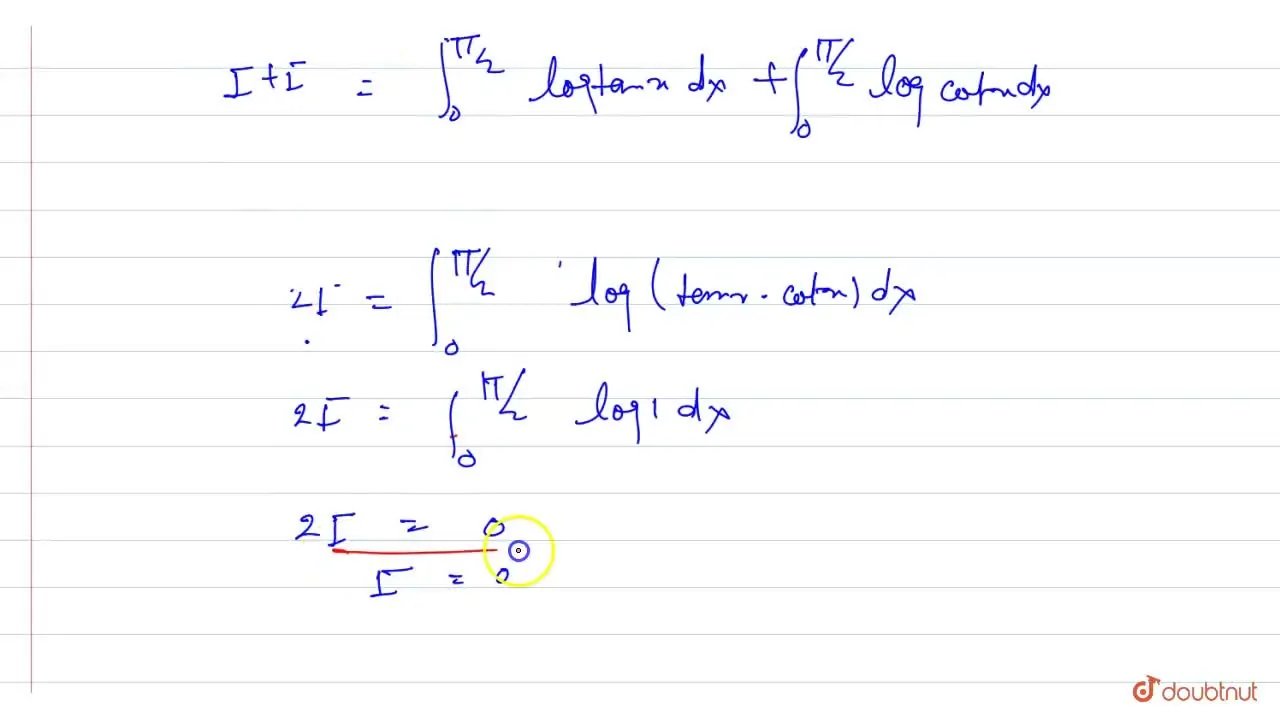 I + I = ∫₀^π/2 log tan x dx + ∫₀^π/2 log cot x dx
2I = ∫₀^π/2 log (tan x . cot x) dx
2I = ∫₀^π/2 log 1 dx
2I = 0
I = 0
doubtnut